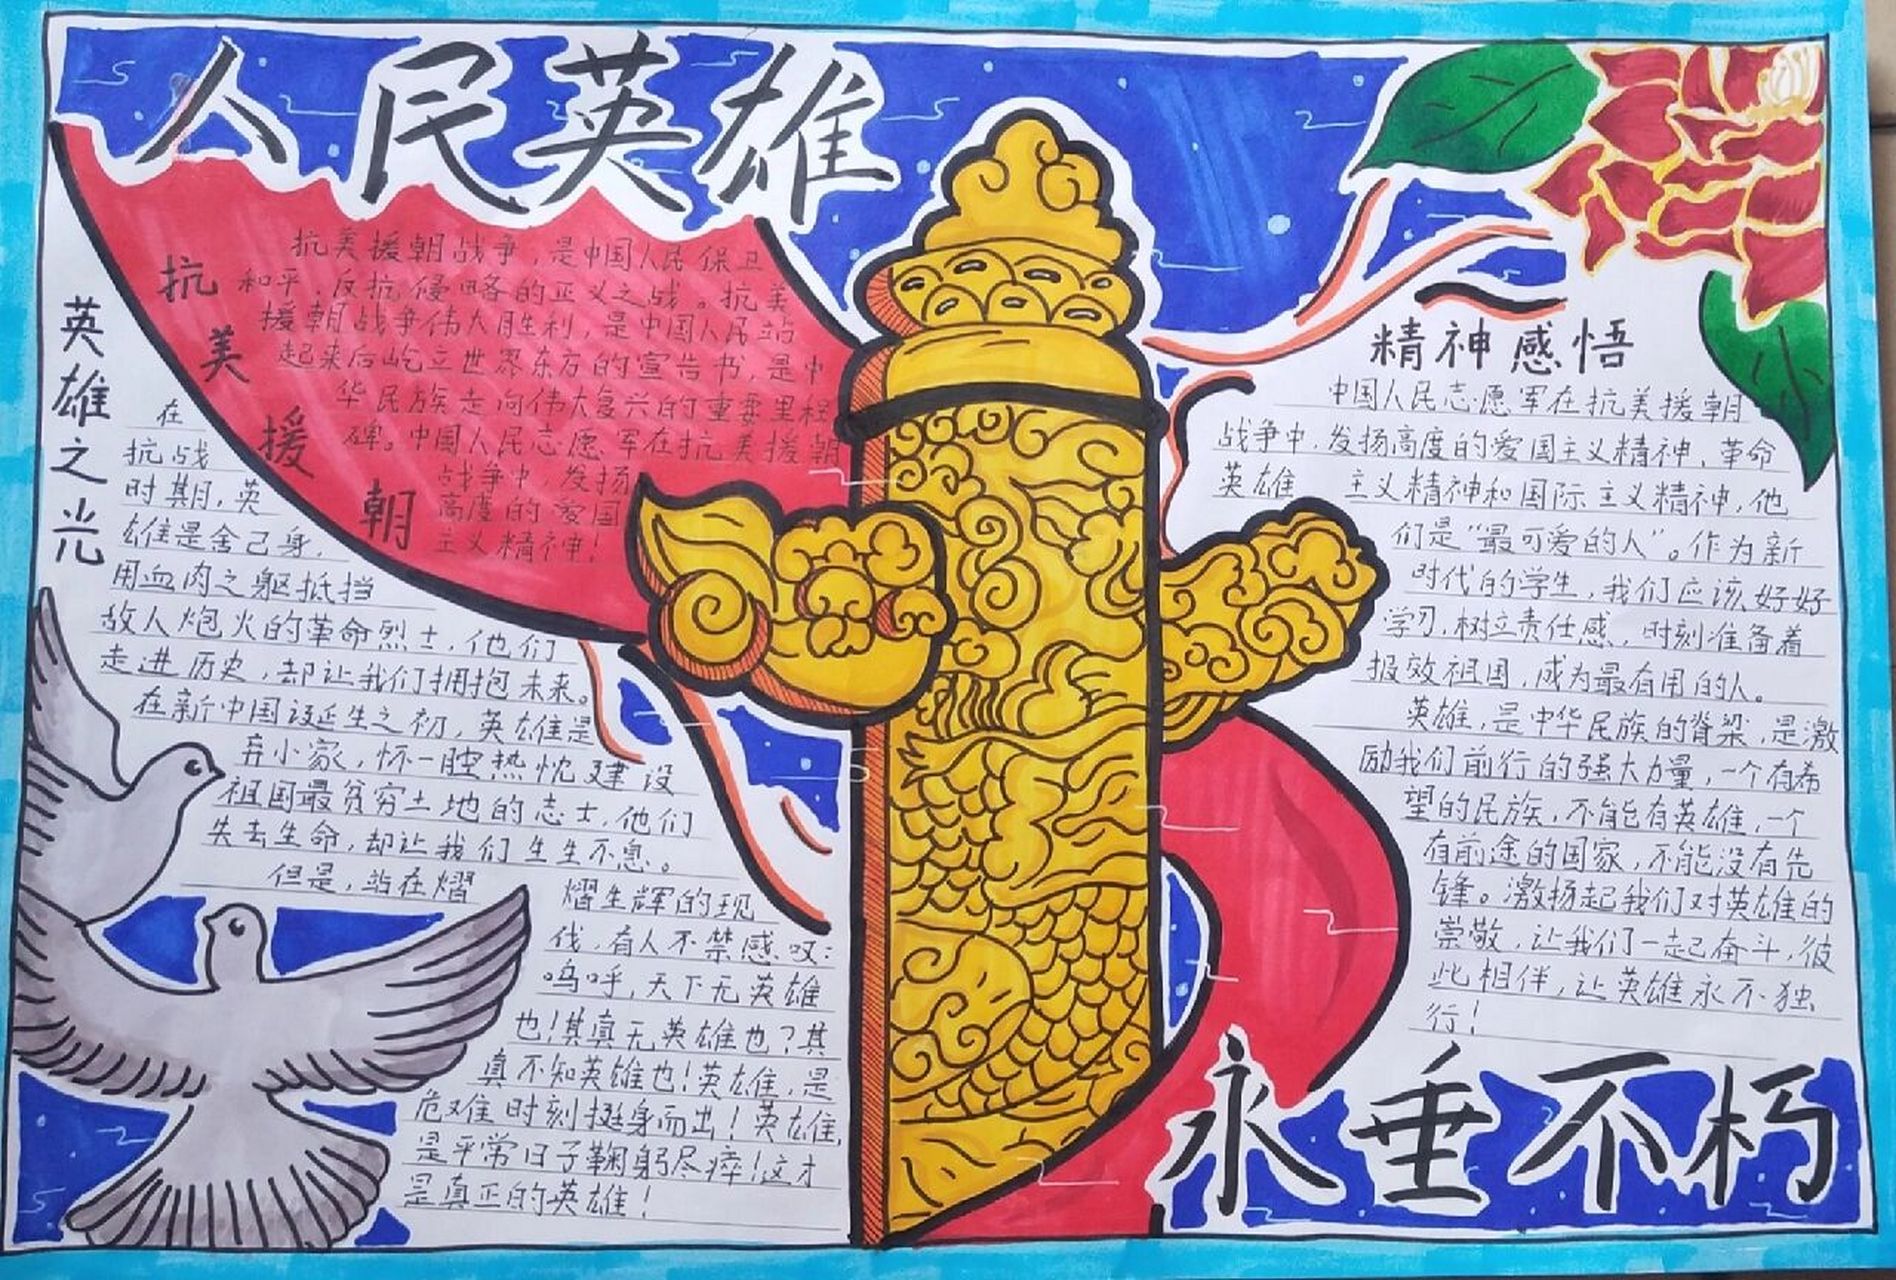 人民英雄
抗美援朝
抗美援朝战争,是中国人民保卫
和平、反抗侵略的正义之战。抗美
援朝战争伟大胜利,是中国人民站
起来后屹立世界东方的宣告书,是中
华民族走向伟大复兴的重要里程
碑。中国人民志愿军在抗美援朝
战争中,发扬
高度的爱国
主义精神!
英雄之光
在
抗战
时期,英
雄是舍己身,
用血肉之躯抵挡
敌人炮火的革命烈士,他们
走进历史,却让我们拥抱未来。
在新中国诞生之初,英雄是
弃小家,怀一腔热忱建设
祖国最贫穷土地的志士,他们
失去生命,却让我们生生不息。
但是,站在熠
熠生辉的现
代,有人不禁感叹:
呜呼,天下无英雄
也!其真无英雄也?其
真不知英雄也!英雄,是
危难时刻挺身而出!英雄,
是平常日子鞠躬尽瘁!这才
是真正的英雄!
精神感悟
中国人民志愿军在抗美援朝
战争中,发扬高度的爱国主义精神、革命
英雄 主义精神和国际主义精神,他
们是“最可爱的人”。作为新
时代的学生,我们应该好好
学习,树立责任感,时刻准备着
报效祖国,成为最有用的人。
英雄,是中华民族的脊梁,是激
励我们前行的强大力量,一个有希
望的民族,不能有英雄,一个
有前途的国家,不能没有先
锋。激扬起我们对英雄的
崇敬,让我们一起奋斗,彼
此相伴,让英雄永不独
行!
永垂不朽